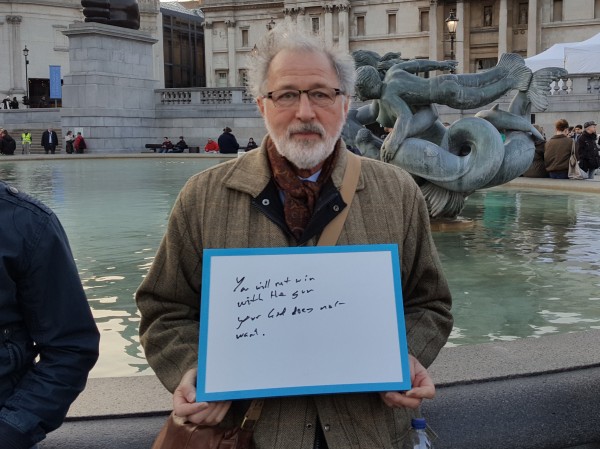 You will not win
with the gun
your God does not
want.